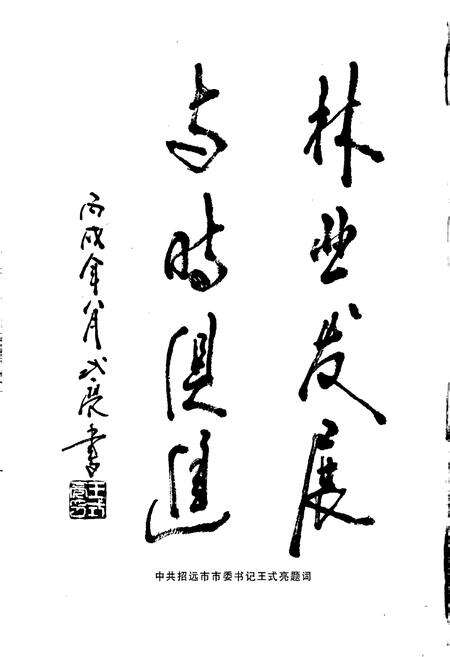 林业发展
与時俱進
丙戌年八月式亮書
王式亮
中共招远市市委书记王式亮题词